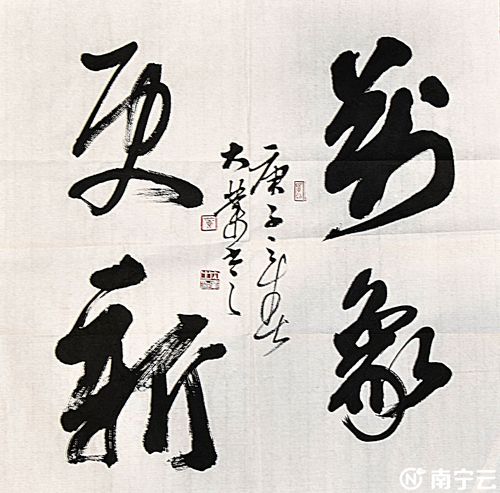 萬象
更新
庚子之春
大業书之
南宁云